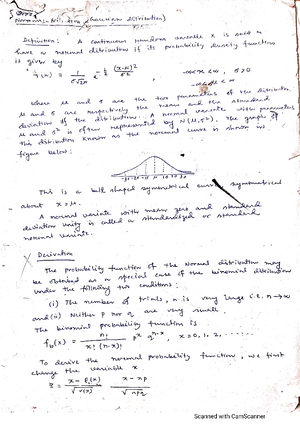 Normal Distribution (Gaussian Distribution)
Definition: A continuous random variable x is said to
have a normal distribution if its probability density function
is given by
f(x) = 1/(σ√2π) e^{-1/2 (x-μ)²/σ²}, -∞<x<∞, σ>0
-∞<μ<∞
where μ and σ are the two parameters of the distribution
μ and σ are respectively the mean and the standard
deviation of the distribution. A normal variate with parameters
μ and σ² is often represented by N(μ,σ²). The graph of
this distribution known as the normal curve is shown in
figure below:
This is a bell shaped symmetrical curve symmetrical
about x=μ.
A normal variate with mean zero and standard
deviation unity is called a standardized or standard
normal variate.
Derivation
The probability function of the Normal distribution may
be obtained as a special case of the binomial distribution
under the following two conditions:
(i) The number of trials, n is very large i.e. n→∞
and (ii) Neither p nor q are very small.
The binomial probability function is
f_b(x) = n!/(x!(n-x)!) p^x q^{n-x}, x=0,1,2,.....
To derive the normal probability function, we first
change the variable x.
z = (x-E(x))/√V(x) (x-np)/√npq
Scanned with CamScanner